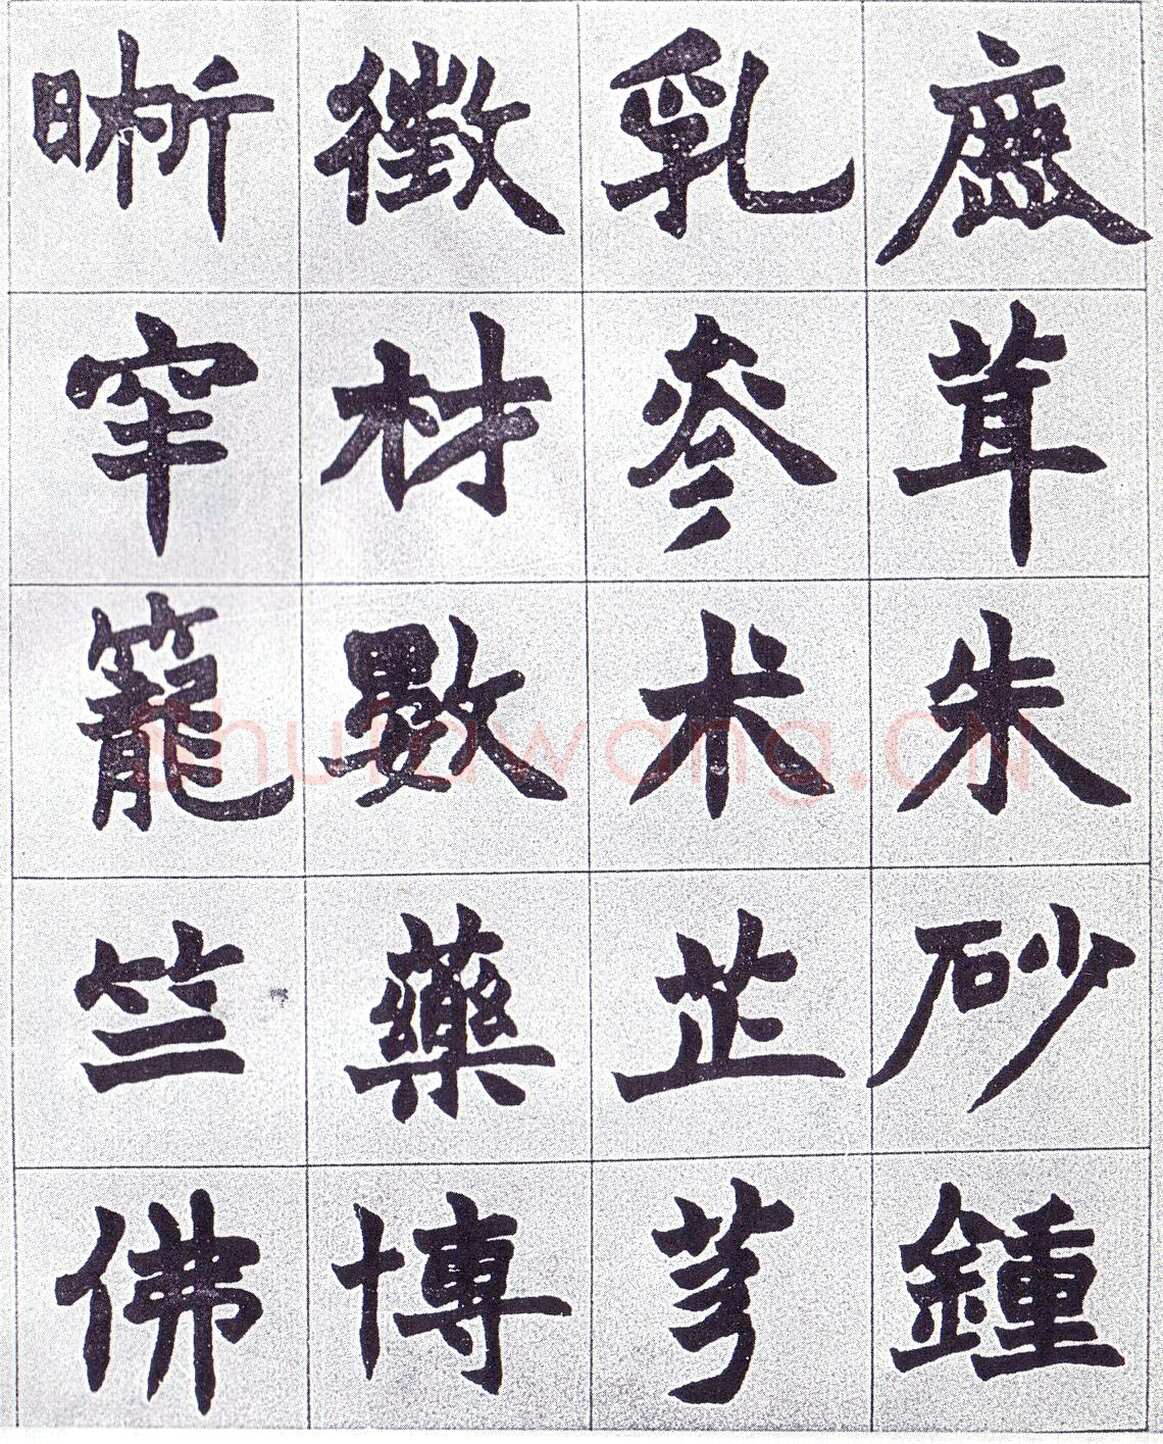 鹿茸朱砂鍾
乳參术芷芎
徵材數藥博
晰窂籠竺佛
shufawang.CN